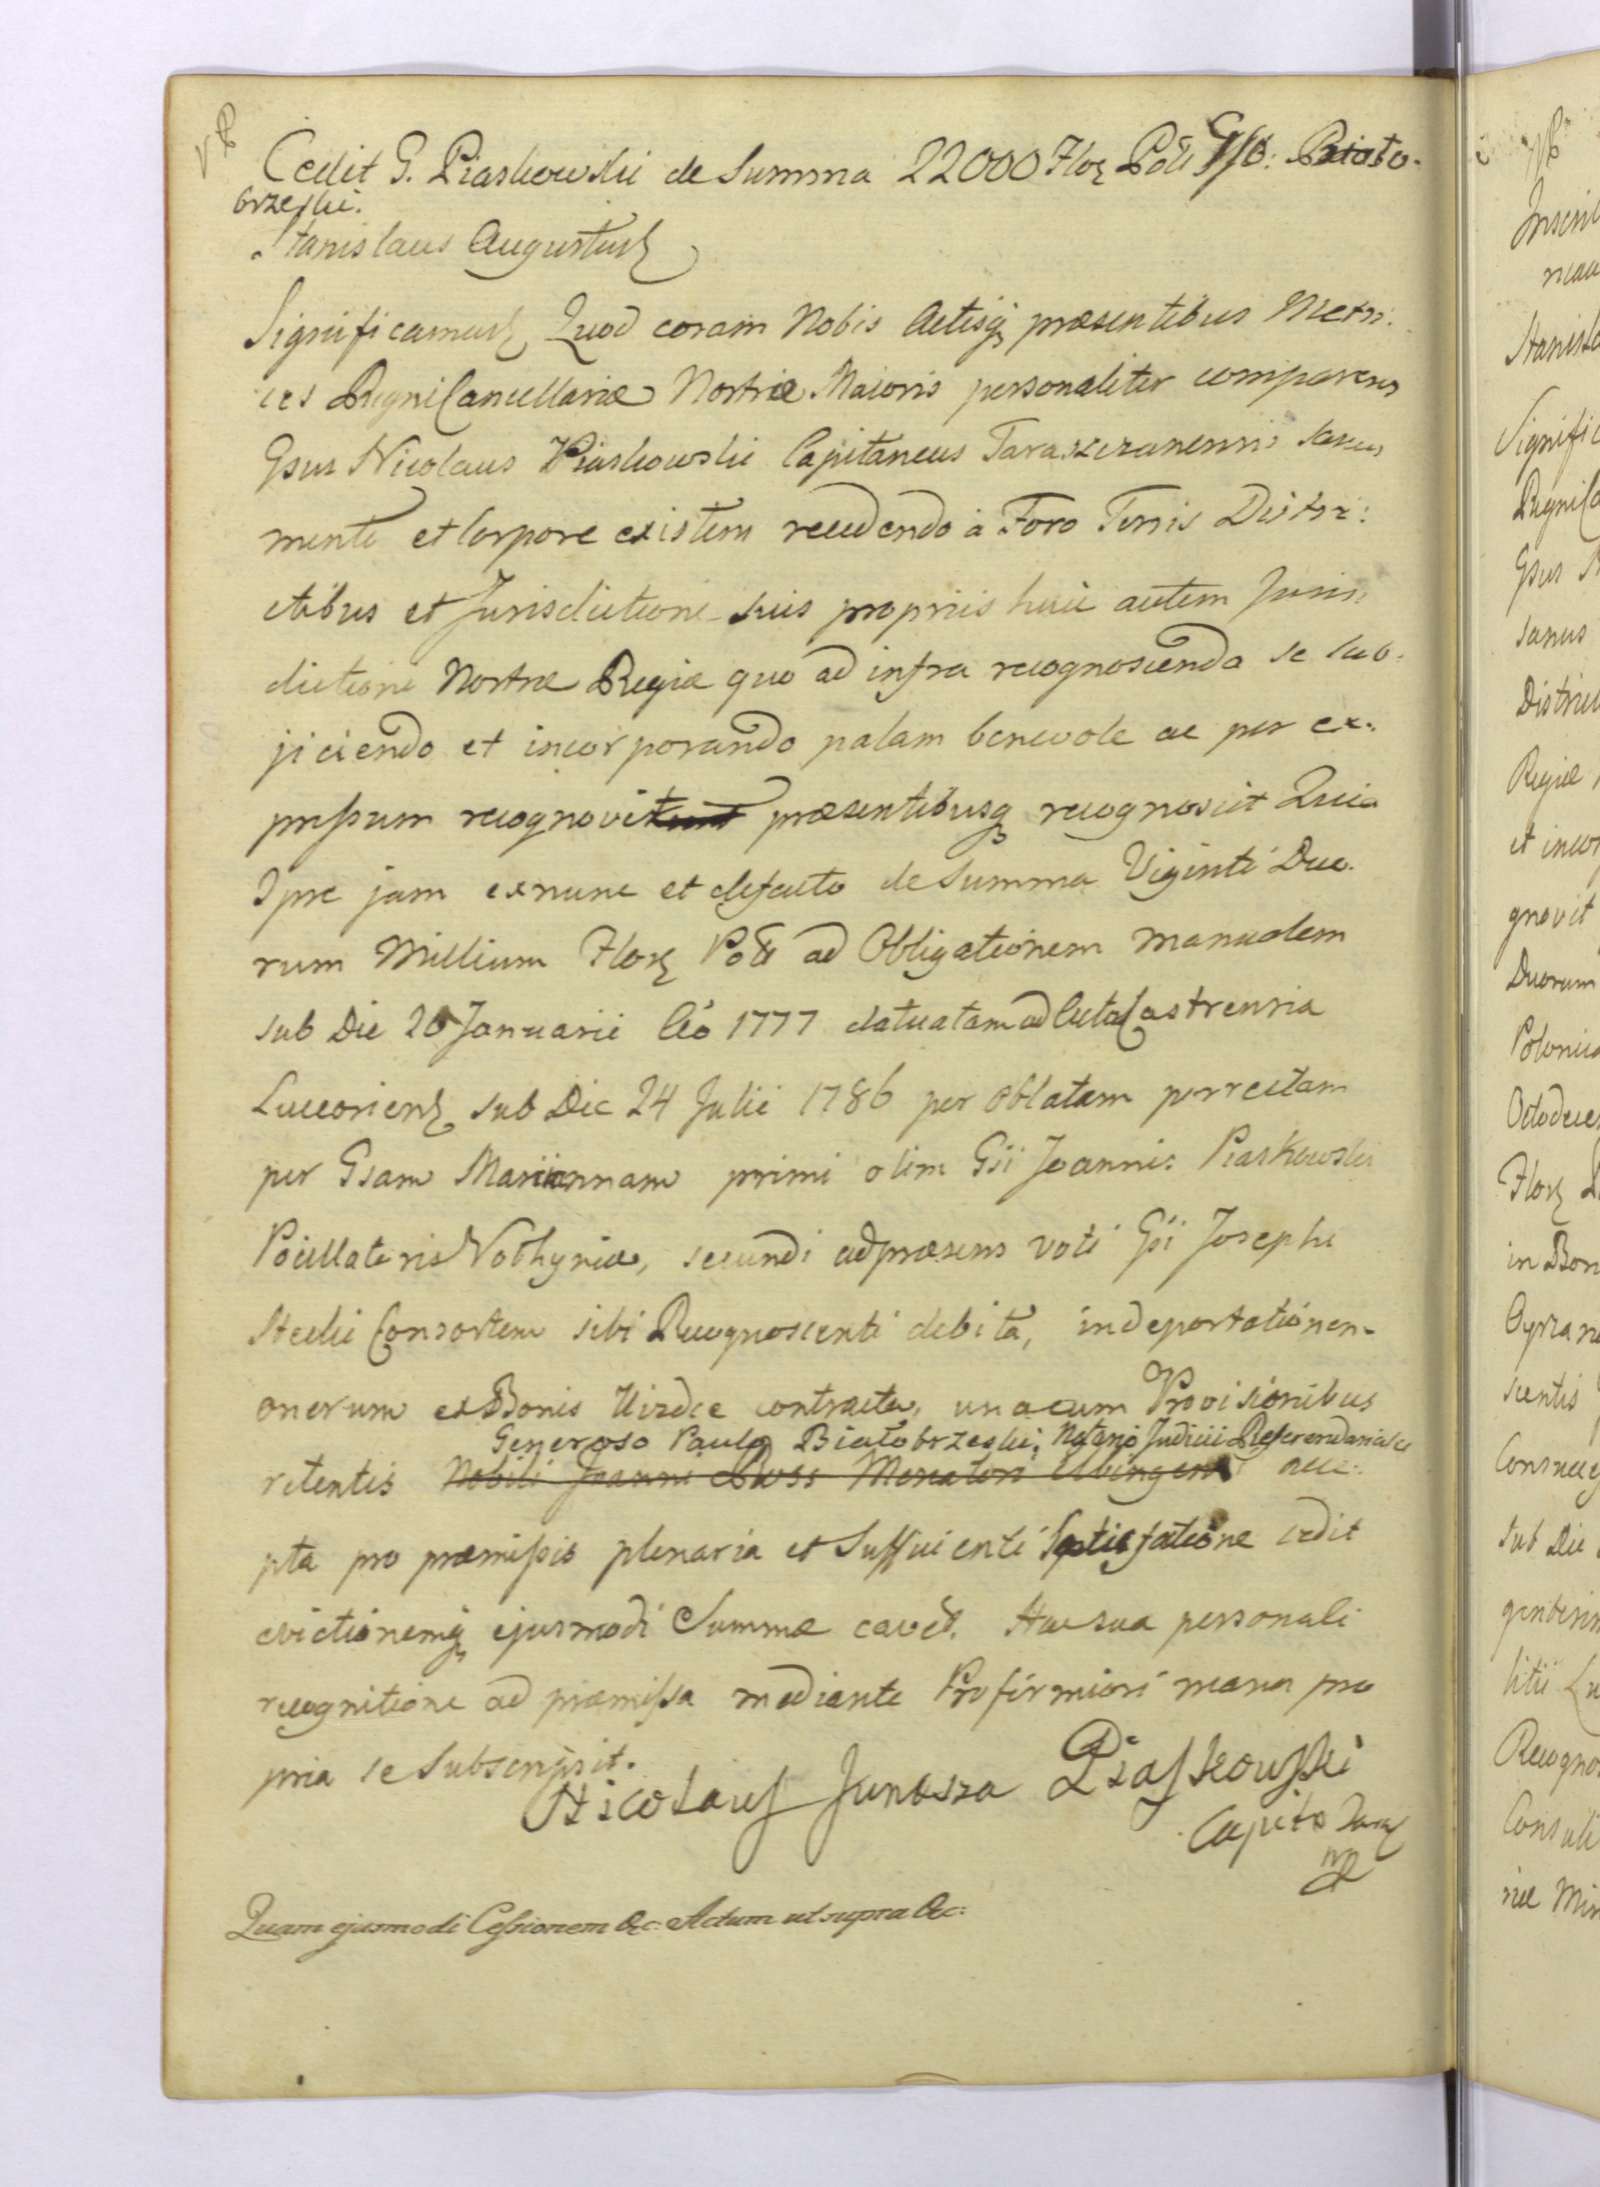 Cedit G. Piaskowski de Summa 22000 Flor Pol Gso: Biało-
brzeski.
Stanislaus Augustus
Significamus Quod coram Nobis Actisq præsentibus Metri-
ces Regni Cancellariæ Nostræ Maioris personaliter comparens
Gsus Nicolaus Piaskowski Capitaneus Taraszczanensis sanus
mente et Corpore existens recedendo à Foro Terris Distri:
ctibus et Jurisdictione suis propriis huic autem Juris-
dictioni Nostræ Regiæ quo ad infra recognoscenda se sub-
jiciendo et incorporando palam benevole ac per ex-
pressum recognovit præsentibusq recognoscit Quia
Ipse jam exnunc et defacto de Summa Viginti Duo-
rum Millium Flor Pol ad Obligationem manualem
sub Die 20 Januarii Aō 1777 datuatam ad Acta Castrensia
Luceorien sub Die 24 Julii 1786 per Oblatam porrectam
per Gsam Mariannam primi olim Gsi Joannis Piaskowski
Pocillatoris Volhyniæ, secundi adpræsens voti Gsi Josephi
Stecki Consortem sibi Recognoscenti debita, in deportationem
onerum ex Bonis Uizdce contracta, unacum Provisionibus
Generoso Paulo Białobrzeski, Notario Judicii Referendarialis
retentis Nobili Joanni Boss Mercatori Elbingensi acce-
pta pro præmissis plenaria et Sufficienti Satisfatione cedit
evictionemq ejusmodi Summæ cavet. Hac sua personali
recognitione ad præmissa mediante Pro firmiori manu pro
pria se Subscripsit.
Nicolaus Junosza Piaskowski
Capita Tara
mp
Quam ejusmodi Cessionem &c: Actum ut supra &c: